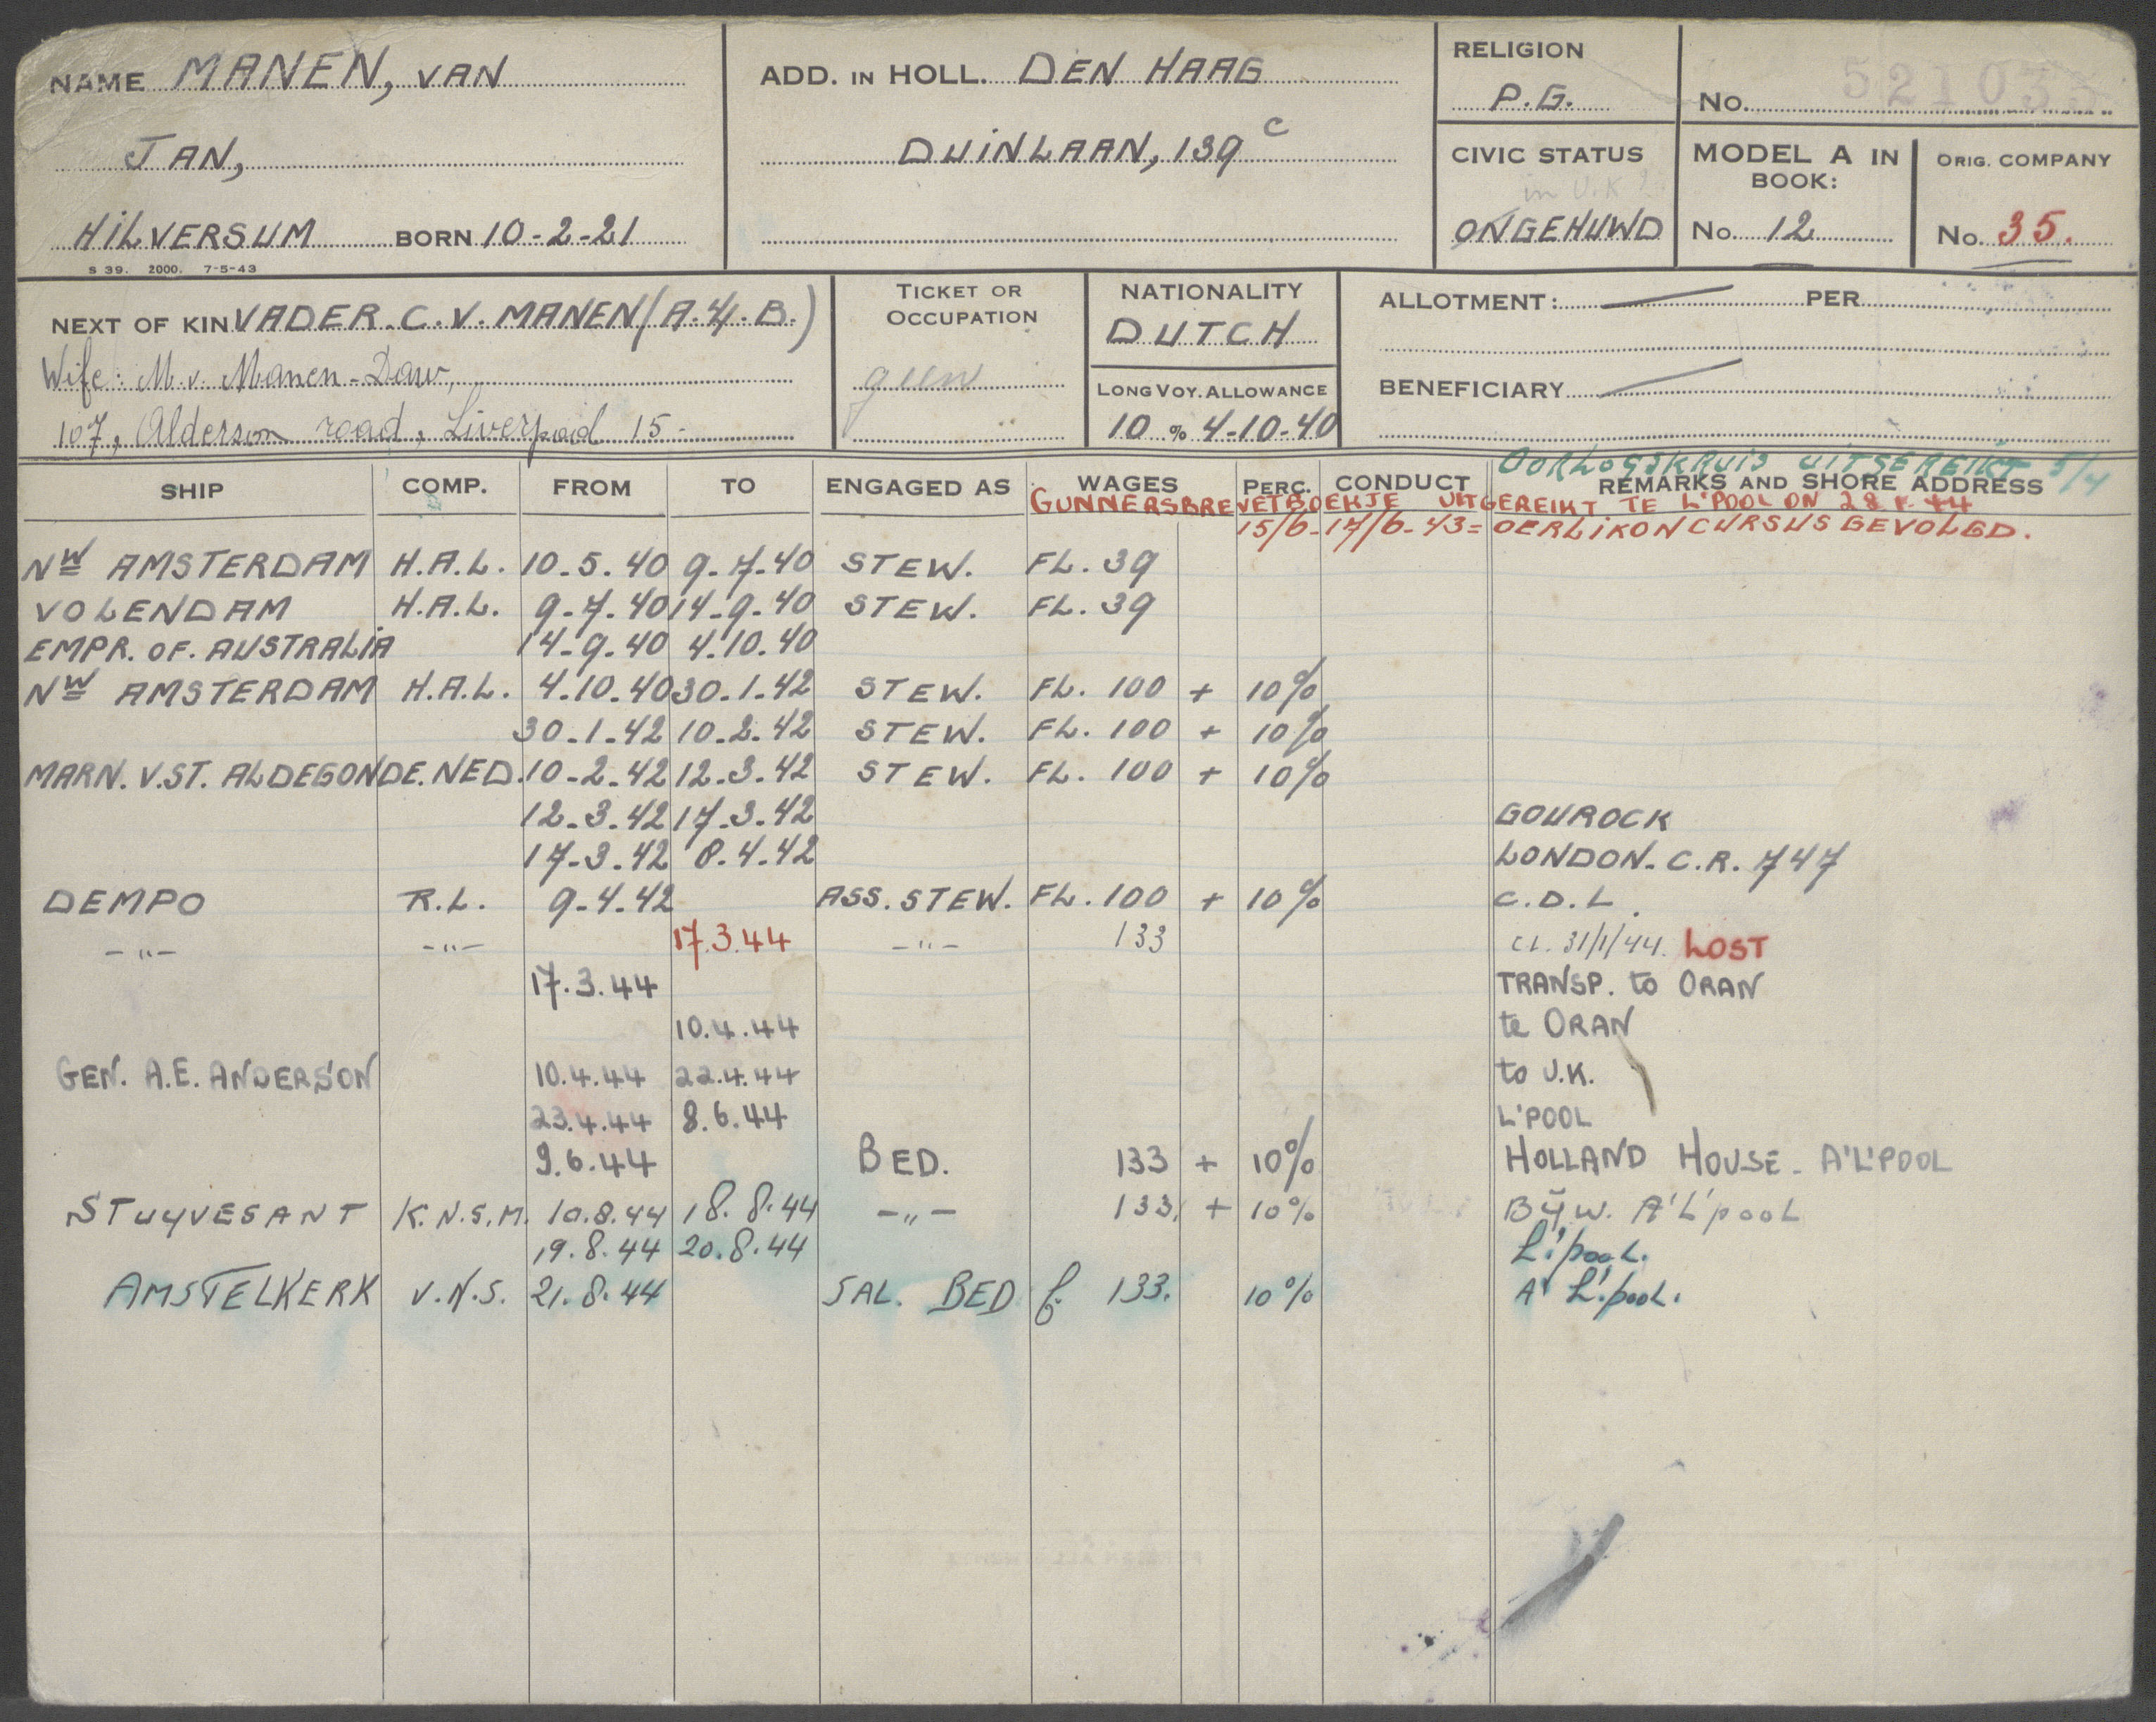 NAME MANEN, VAN
JAN,
HILVERSUM BORN 10-2-21
S 39. 2000. 7-5-43
ADD. IN HOLL. DEN HAAG
DUINLAAN, 139 C
RELIGION
P.G.
No. 521035
CIVIC STATUS
in U.K?
ONGEHUWD
MODEL A IN BOOK:
No. 12
ORIG. COMPANY
No. 35.
NEXT OF KIN VADER. C. V. MANEN (A.4.B.)
Wife: M. v. Manen-Daw,
107, Alderson road, Liverpool 15-
TICKET OR OCCUPATION
geen
NATIONALITY
DUTCH
LONG VOY. ALLOWANCE
10 % 4-10-40
ALLOTMENT: — PER
BENEFICIARY —
OORLOGSKRUIS UITGEREIKT 5/4
SHIP COMP. FROM TO ENGAGED AS WAGES PERC. CONDUCT REMARKS AND SHORE ADDRESS
GUNNERSBREVETBOEKJE UITGEREIKT TE L'POOL ON 28 44
15/6-17/6-43= OERLIKON CURSUS GEVOLGD.
NW AMSTERDAM H.A.L. 10.5.40 9-7-40 STEW. FL. 39
VOLENDAM H.A.L. 9-7.40 14-9.40 STEW. FL. 39
EMPR. OF. AUSTRALIA 14-9.40 4.10.40
NW AMSTERDAM H.A.L. 4.10.40 30.1.42 STEW. FL. 100 + 10%
30.1.42 10.2.42 STEW. FL. 100 + 10%
MARN. V.ST. ALDEGONDE. NED. 10-2.42 12.3.42 STEW. FL. 100 + 10%
12.3.42 17.3.42 GOUROCK
17-3.42 8.4.42 LONDON-C.R. 747
DEMPO R.L. 9-4-42 ASS. STEW. FL. 100 + 10% C.D.L.
-"- -"- 17.3.44 -"- 133 CL. 31/1/44. LOST
17.3.44 TRANSP. to ORAN
10.4.44 te ORAN
GEN. A.E. ANDERSON 10.4.44 22.4.44 to U.K.
23.4.44 8.6.44 L'POOL
9.6.44 BED. 133 + 10% HOLLAND HOUSE - A'L'POOL
STUYVESANT K.N.S.M. 10.8.44 18.8.44 -"- 133, + 10% BijW. A'L'pool
19.8.44 20.8.44 L'pool.
AMSTELKERK V.N.S. 21.8.44 SAL. BED f. 133. 10% A' L'pool.